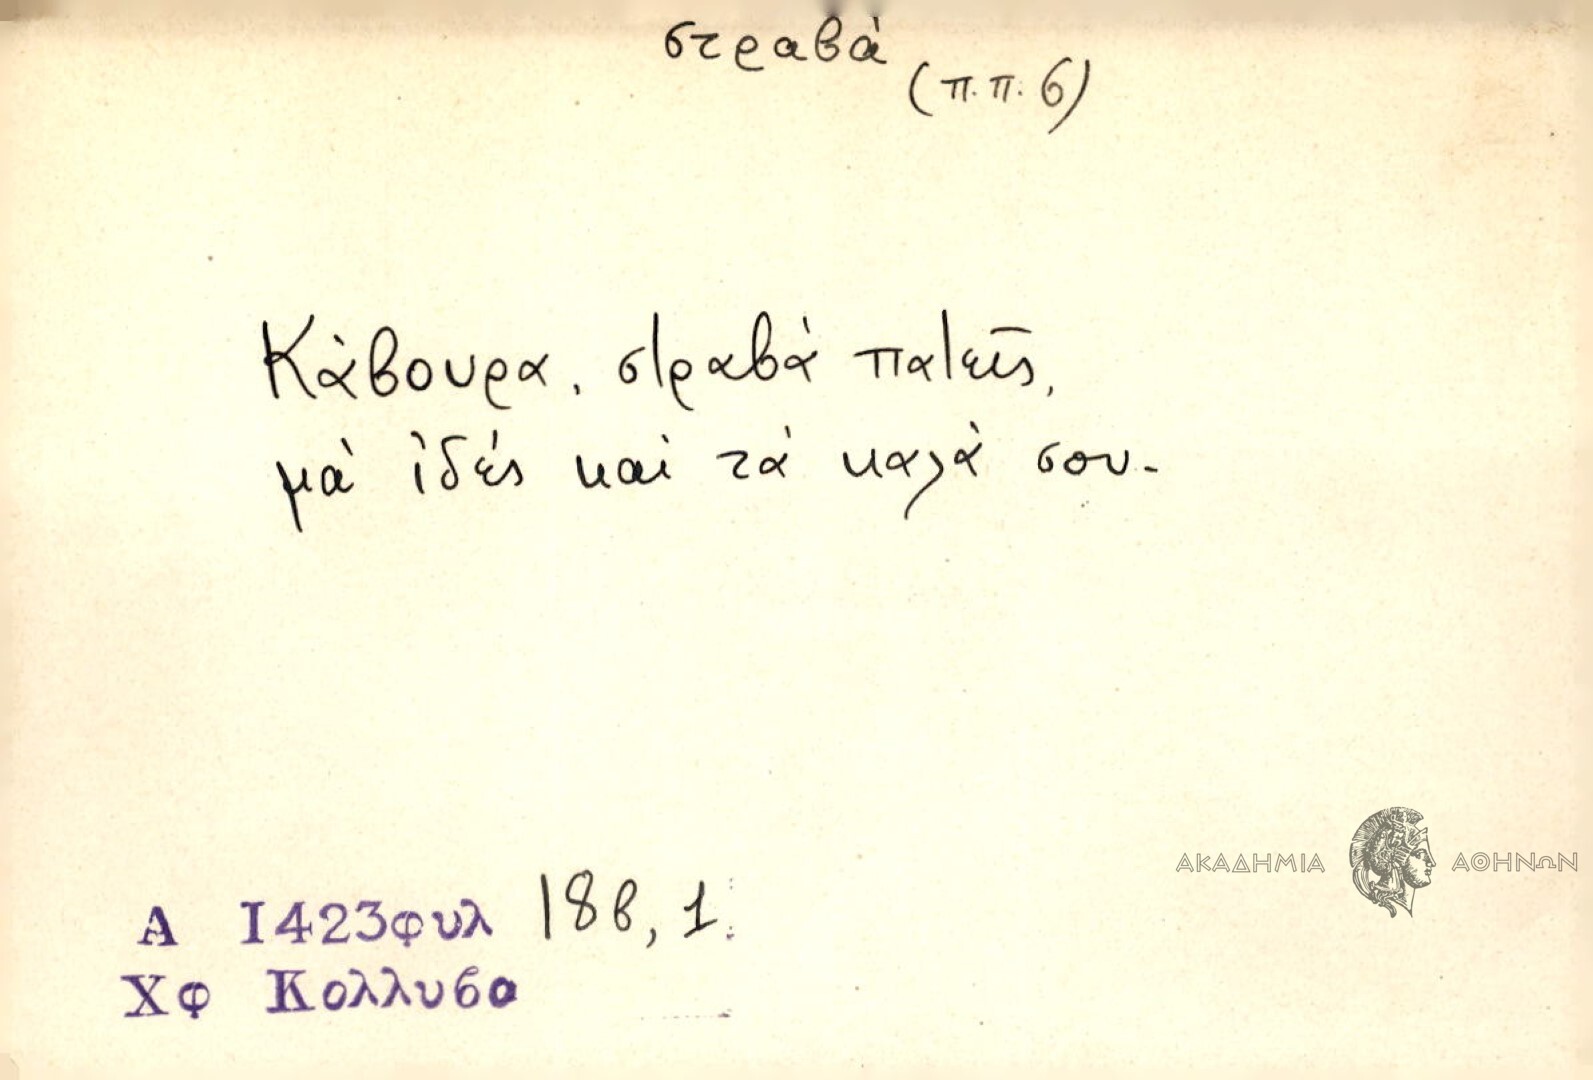 στραβά
(π.π. 6)
Κάβουρα, στραβά πατεῖς,
μὰ ἰδές καὶ τὰ καλά σου.
Α 1423φυλ 18β, 1.
Χφ Κολλυβα
ΑΚΑΔΗΜΙΑ ΑΘΗΝΩΝ